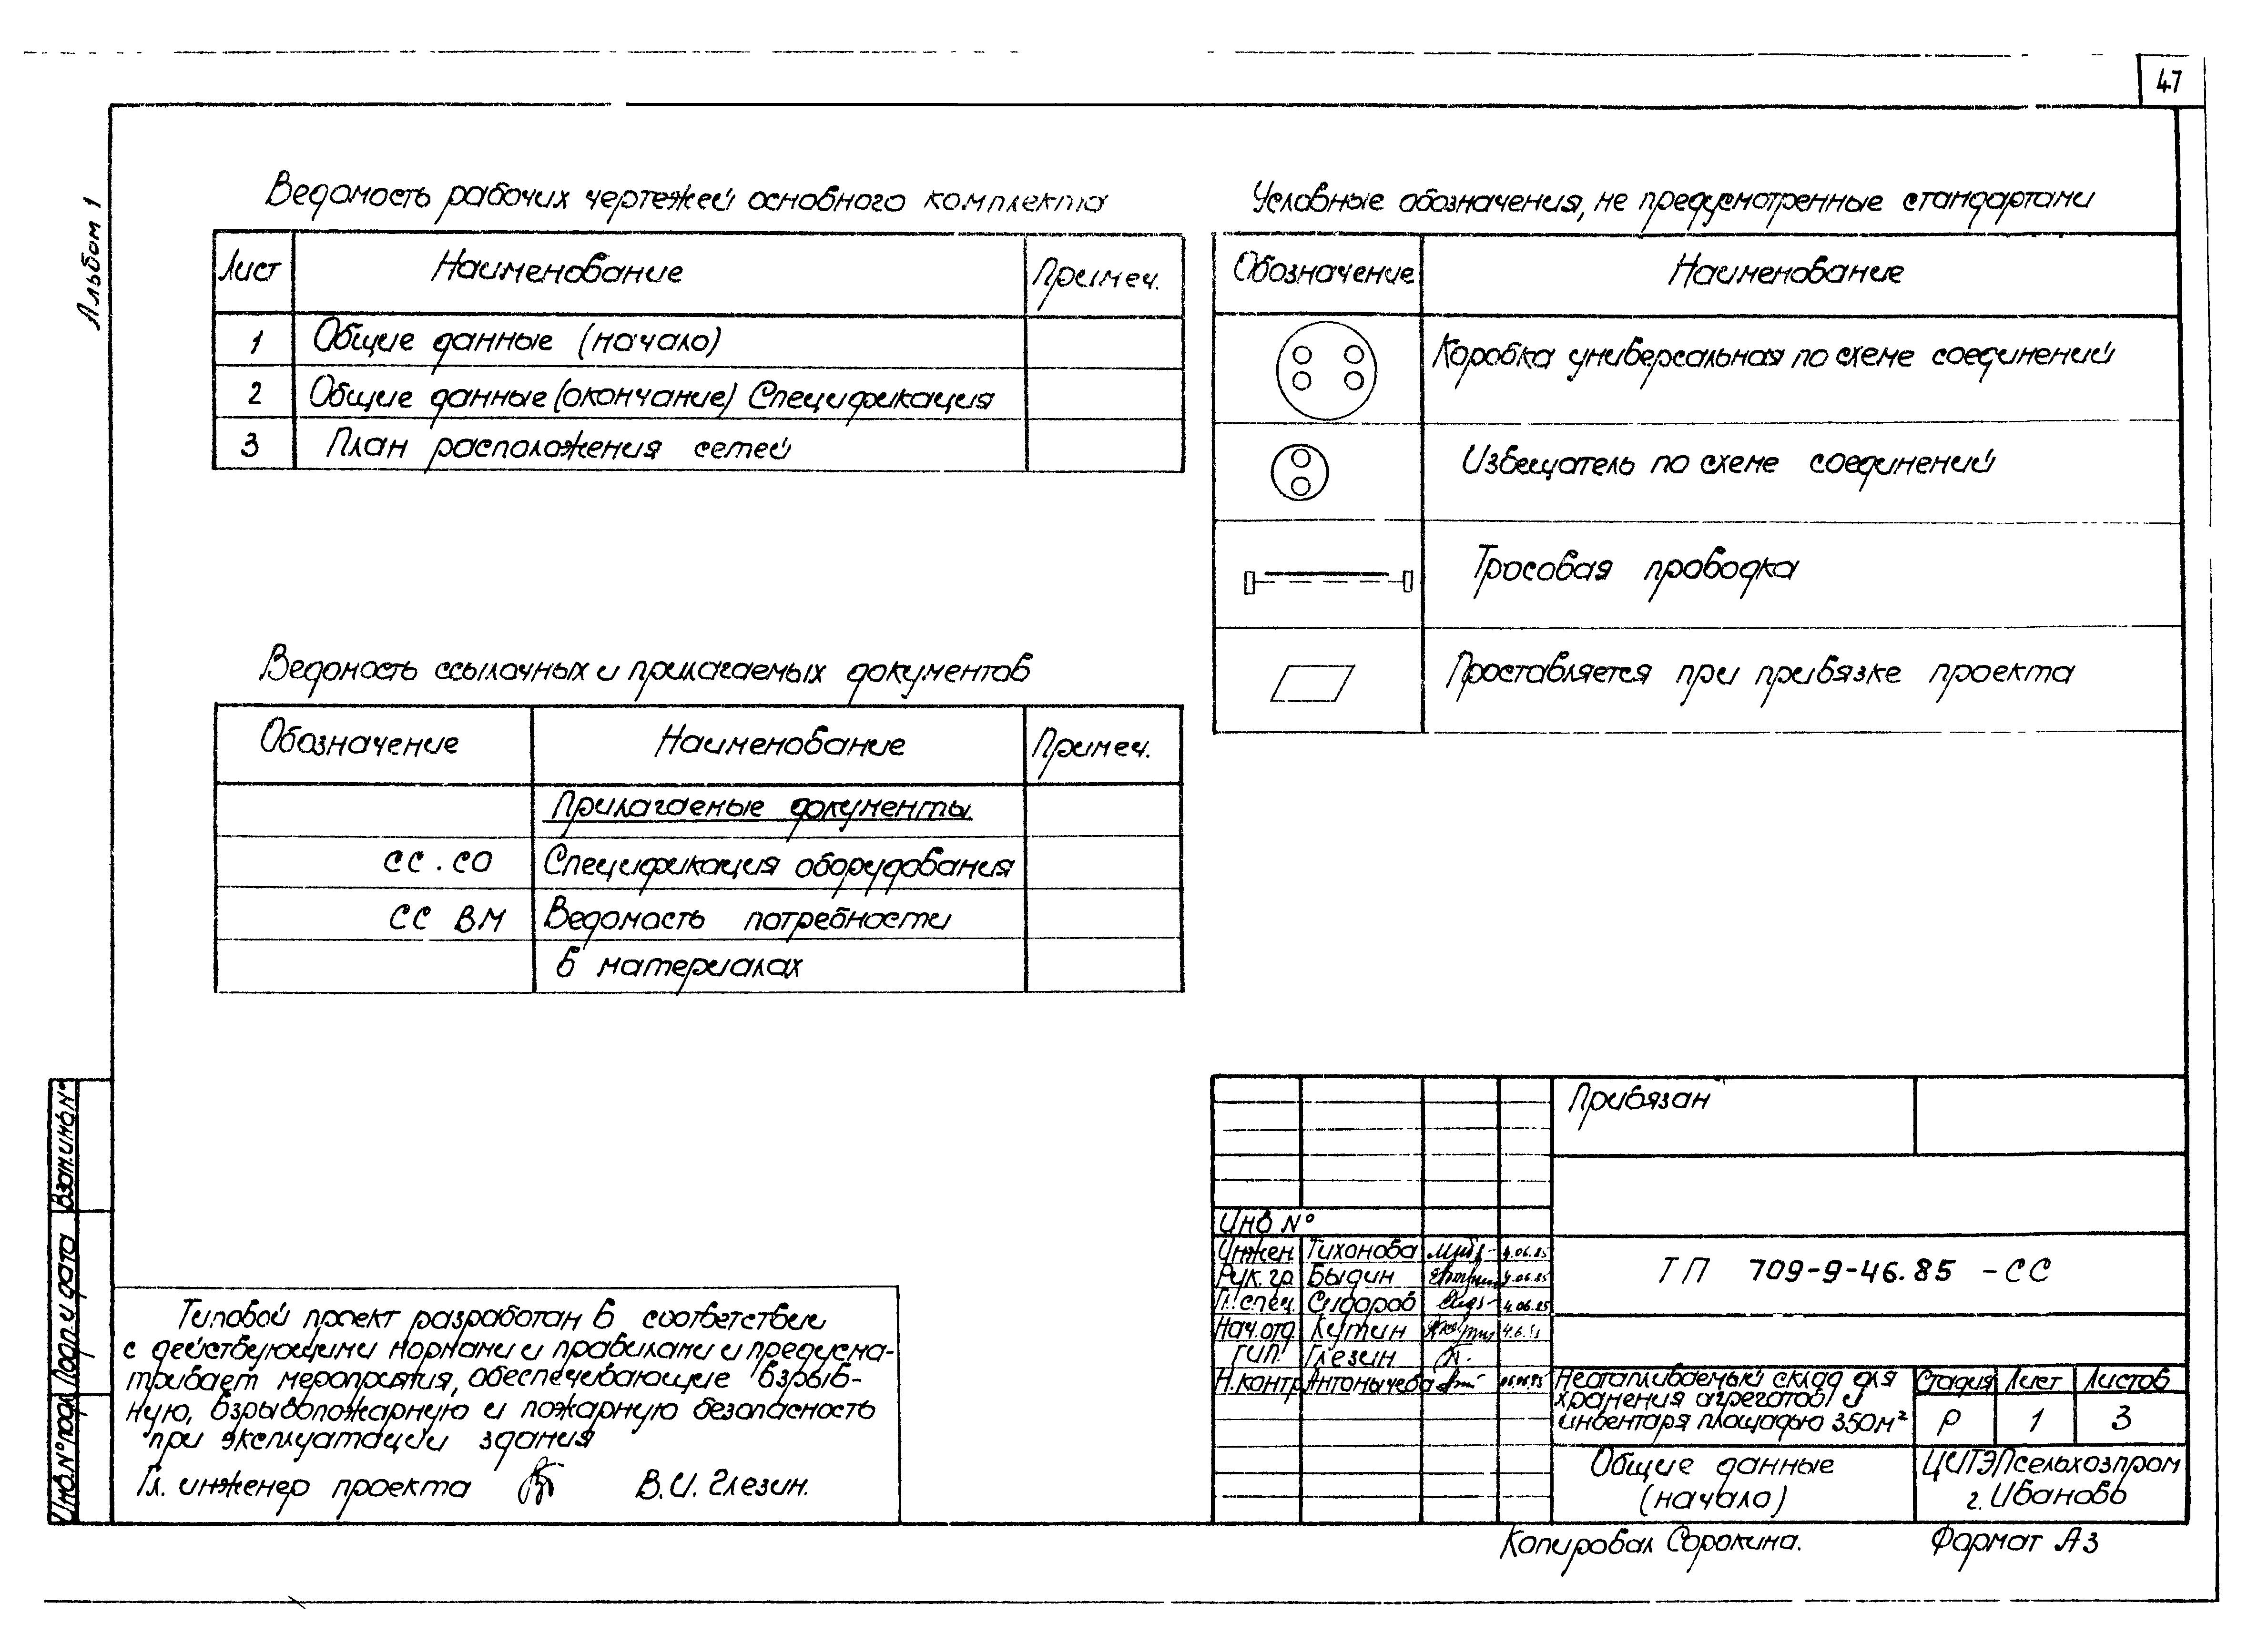 47
Альбом 1
Ведомость рабочих чертежей основного комплекта
Лист Наименование Примеч.
1 Общие данные (начало)
2 Общие данные (окончание) Спецификация
3 План расположения сетей
Условные обозначения, не предусмотренные стандартами
Обозначение Наименование
Коробка универсальная по схеме соединений
Извещатель по схеме соединений
Тросовая проводка
Проставляется при привязке проекта
Ведомость ссылочных и прилагаемых документов
Обозначение Наименование Примеч.
Прилагаемые документы
СС.СО Спецификация оборудования
СС ВМ Ведомость потребности
в материалах
Взам.инв.N°
Подп. и дата
Инв.N°подл.
Типовой проект разработан в соответствии
с действующими нормами и правилами и предусма-
тривает мероприятия, обеспечивающие взрыв-
ную, взрывопожарную и пожарную безопасность
при эксплуатации здания
Гл. инженер проекта В.И. Глезин.
Привязан
Инв N°
Инжен. Тихонова 4.06.85
Рук.гр Быдин 4.06.85
Гл.спец. Сидоров 4.06.85
Нач.отд Кутин
ГИП Глезин
Н.контр Антонычева
ТП 709-9-46.85 -СС
Неотапливаемый склад для
хранения агрегатов и
инвентаря площадью 350м²
Стадия Лист Листов
Р 1 3
Общие данные
(начало)
ЦИТЭПсельхозпром
г. Иваново
Копировал Сорокина.
Формат А3